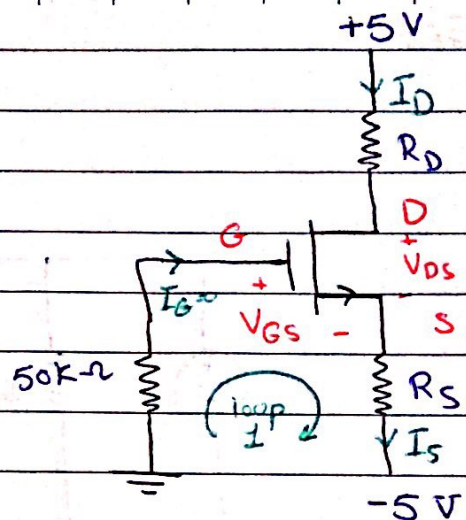 +5 V
I_D
R_D
G
D
+
V_DS
-
I_G=0
+
V_GS
-
S
50k Ω
loop
1
R_S
I_S
-5 V